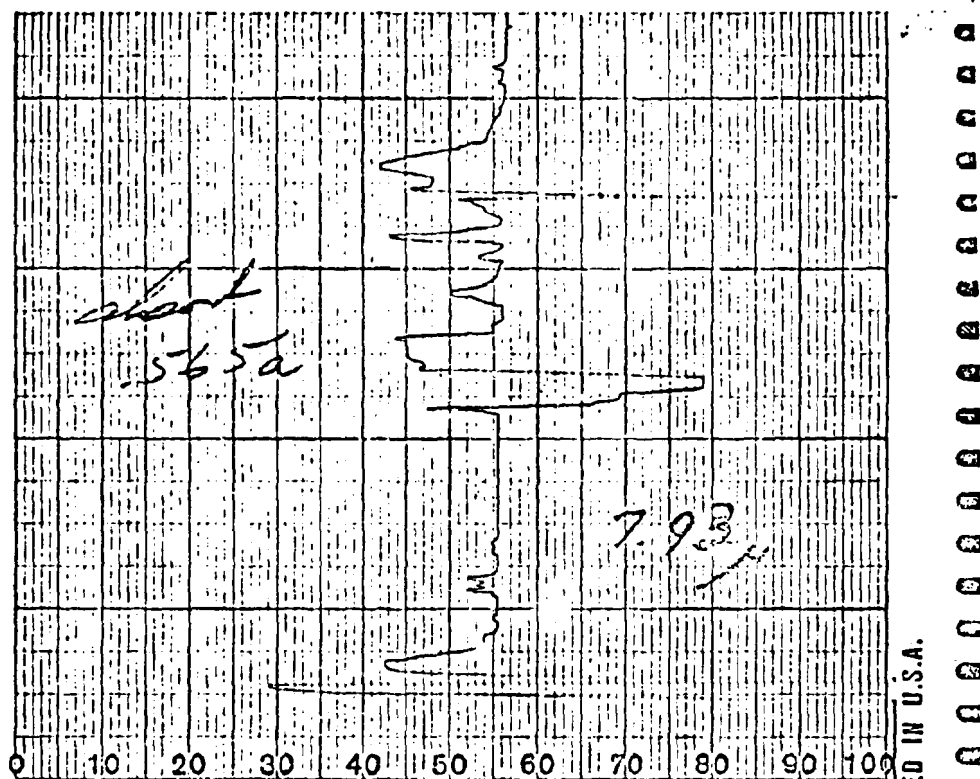 .565a
7.93
0 10 20 30 40 50 60 70 80 90 100
D IN U.S.A.